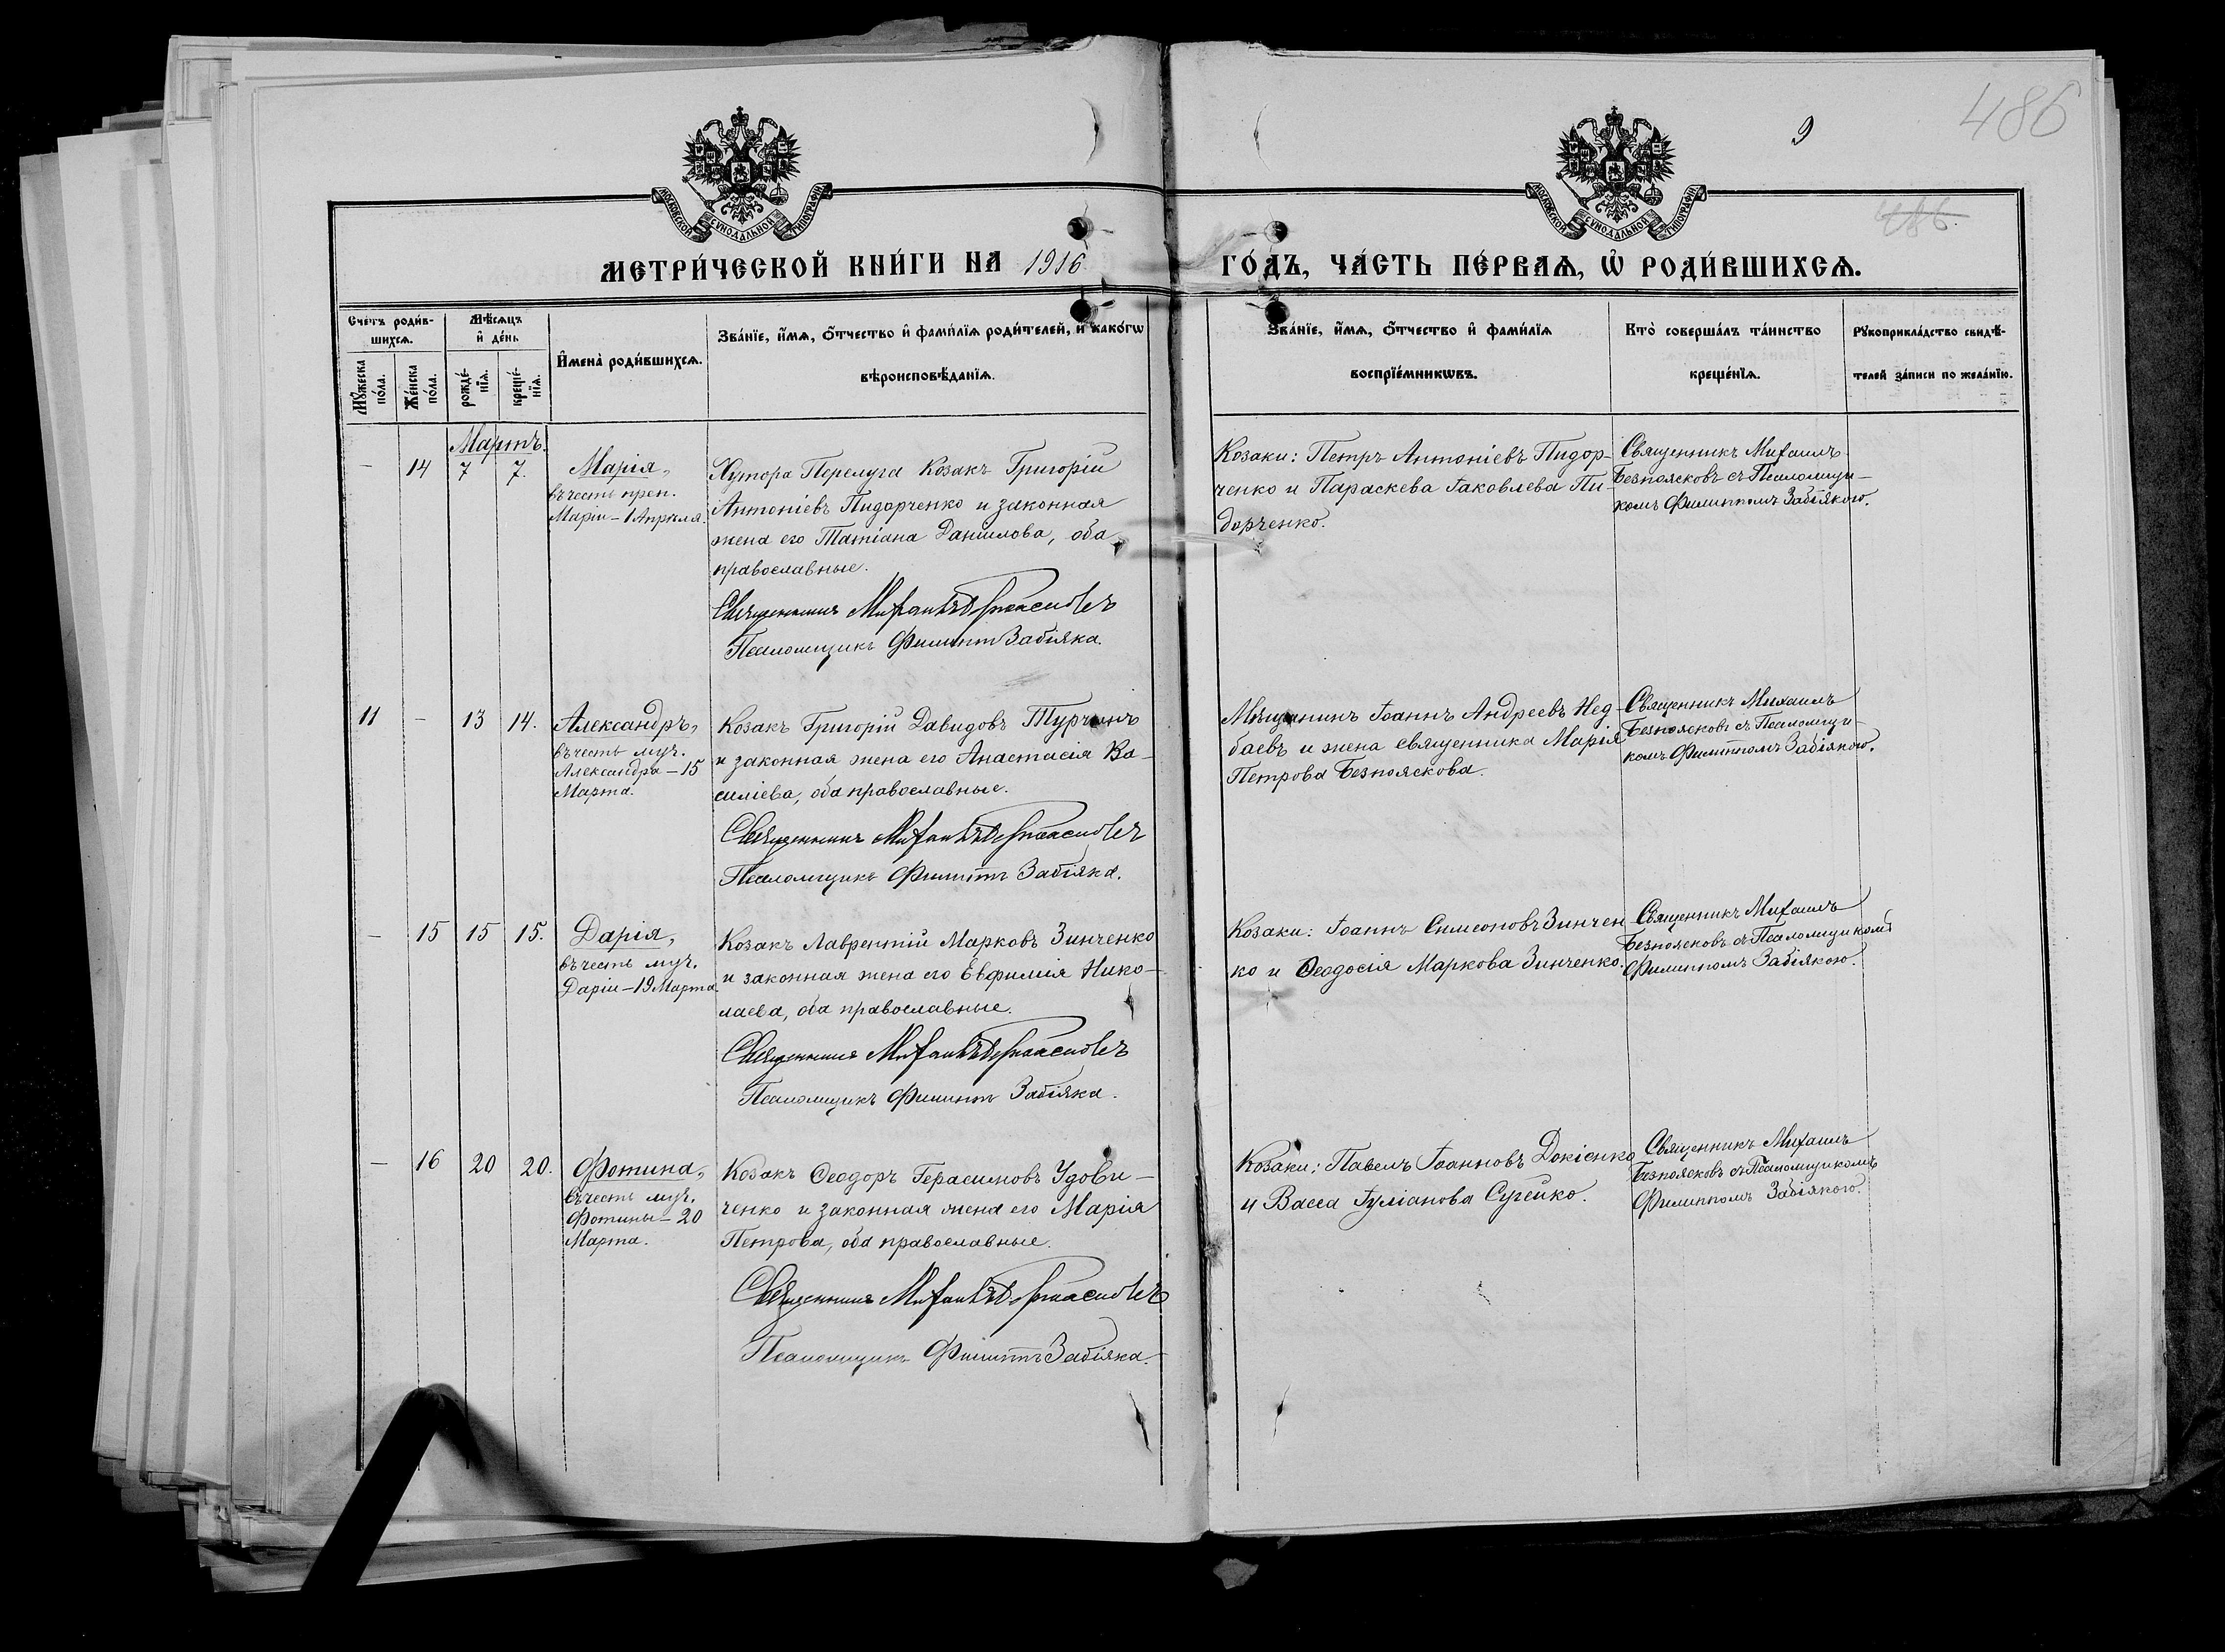 486
9
486.
МОСКОВСКОЙ СѴНОДАЛЬНОЙ ТИПОГРАФІИ
МОСКОВСКОЙ СѴНОДАЛЬНОЙ ТИПОГРАФІИ
МЕТРИ́ЧЕСКОЙ КНИ́ГИ НА 1916 ГО́ДЪ, ЧА́СТЬ ПЕ́РВАѦ, Ѡ҆ РОДИ́ВШИХСѦ.
Счетъ роди́в-
шихсѧ.
Мѣ́сѧцъ
и҆ де́нь
И҆мена̀ роди́вшихсѧ.
Зва́нїе, и҆́мѧ, ѻ҆́тчество и҆ фами́лїѧ роди́телей, и҆ како́гѡ
вѣроисповѣ́данїѧ.
Зва́нїе, и҆́мѧ, ѻ҆́тчество и҆ фами́лїѧ
воспрїе́мникѡвъ.
Кто̀ соверша́лъ та́инство
креще́нїѧ.
Рꙋкоприкла́дство свидѣ́-
телей за́писи по жела́нїю.
Мꙋ́жеска
по́ла.
Же́нска
по́ла.
рожде́-
нїѧ.
креще́-
нїѧ.
Мартъ.
— 14 7 7. Марія,
въ честь преп.
Маріи — 1 Апрѣля.
Хутора Перелуга Козакъ Григорій
Антоніевъ Пидорченко и законная
жена его Татіана Данилова, оба
православные.
Священникъ Михаилъ Безпоясковъ
Псаломщикъ Филиппъ Забіяка.
Козаки: Петръ Антоніевъ Пидор-
ченко и Параскева Іаковлева Пи-
дорченко.
Священникъ Михаилъ
Безпоясковъ съ Псаломщи-
комъ Филиппомъ Забіякою.
11 — 13 14. Александръ,
въ честь муч.
Александра — 15
Марта.
Козакъ Григорій Давидовъ Турчинъ
и законная жена его Анастасія Ва-
силіева, оба православные.
Священникъ Михаилъ Безпоясковъ
Псаломщикъ Филиппъ Забіяка.
Мѣщанинъ Іоаннъ Андреевъ Нед-
баевъ и жена священника Марія
Петрова Безпояскова.
Священникъ Михаилъ
Безпоясковъ съ Псаломщи-
комъ Филиппомъ Забіякою.
— 15 15 15. Дарія,
въ честь муч.
Даріи — 19 Марта.
Козакъ Лаврентій Марковъ Зинченко
и законная жена его Евфимія Нико-
лаева, оба православные.
Священникъ Михаилъ Безпоясковъ
Псаломщикъ Филиппъ Забіяка.
Козаки: Іоаннъ Симеоновъ Зинчен
ко и Ѳеодосія Маркова Зинченко.
Священникъ Михаилъ
Безпоясковъ съ Псаломщикомъ
Филиппомъ Забіякою.
— 16 20 20. Фотина,
въ честь муч.
Фотины — 20
Марта.
Козакъ Ѳеодоръ Герасимовъ Удови-
ченко и законная жена его Марія
Петрова, оба православные.
Священникъ Михаилъ Безпоясковъ
Псаломщикъ Филиппъ Забіяка.
Козаки: Павелъ Іоанновъ Докіенко
и Васса Іуліанова Сугейко.
Священникъ Михаилъ
Безпоясковъ съ Псаломщикомъ
Филиппомъ Забіякою.